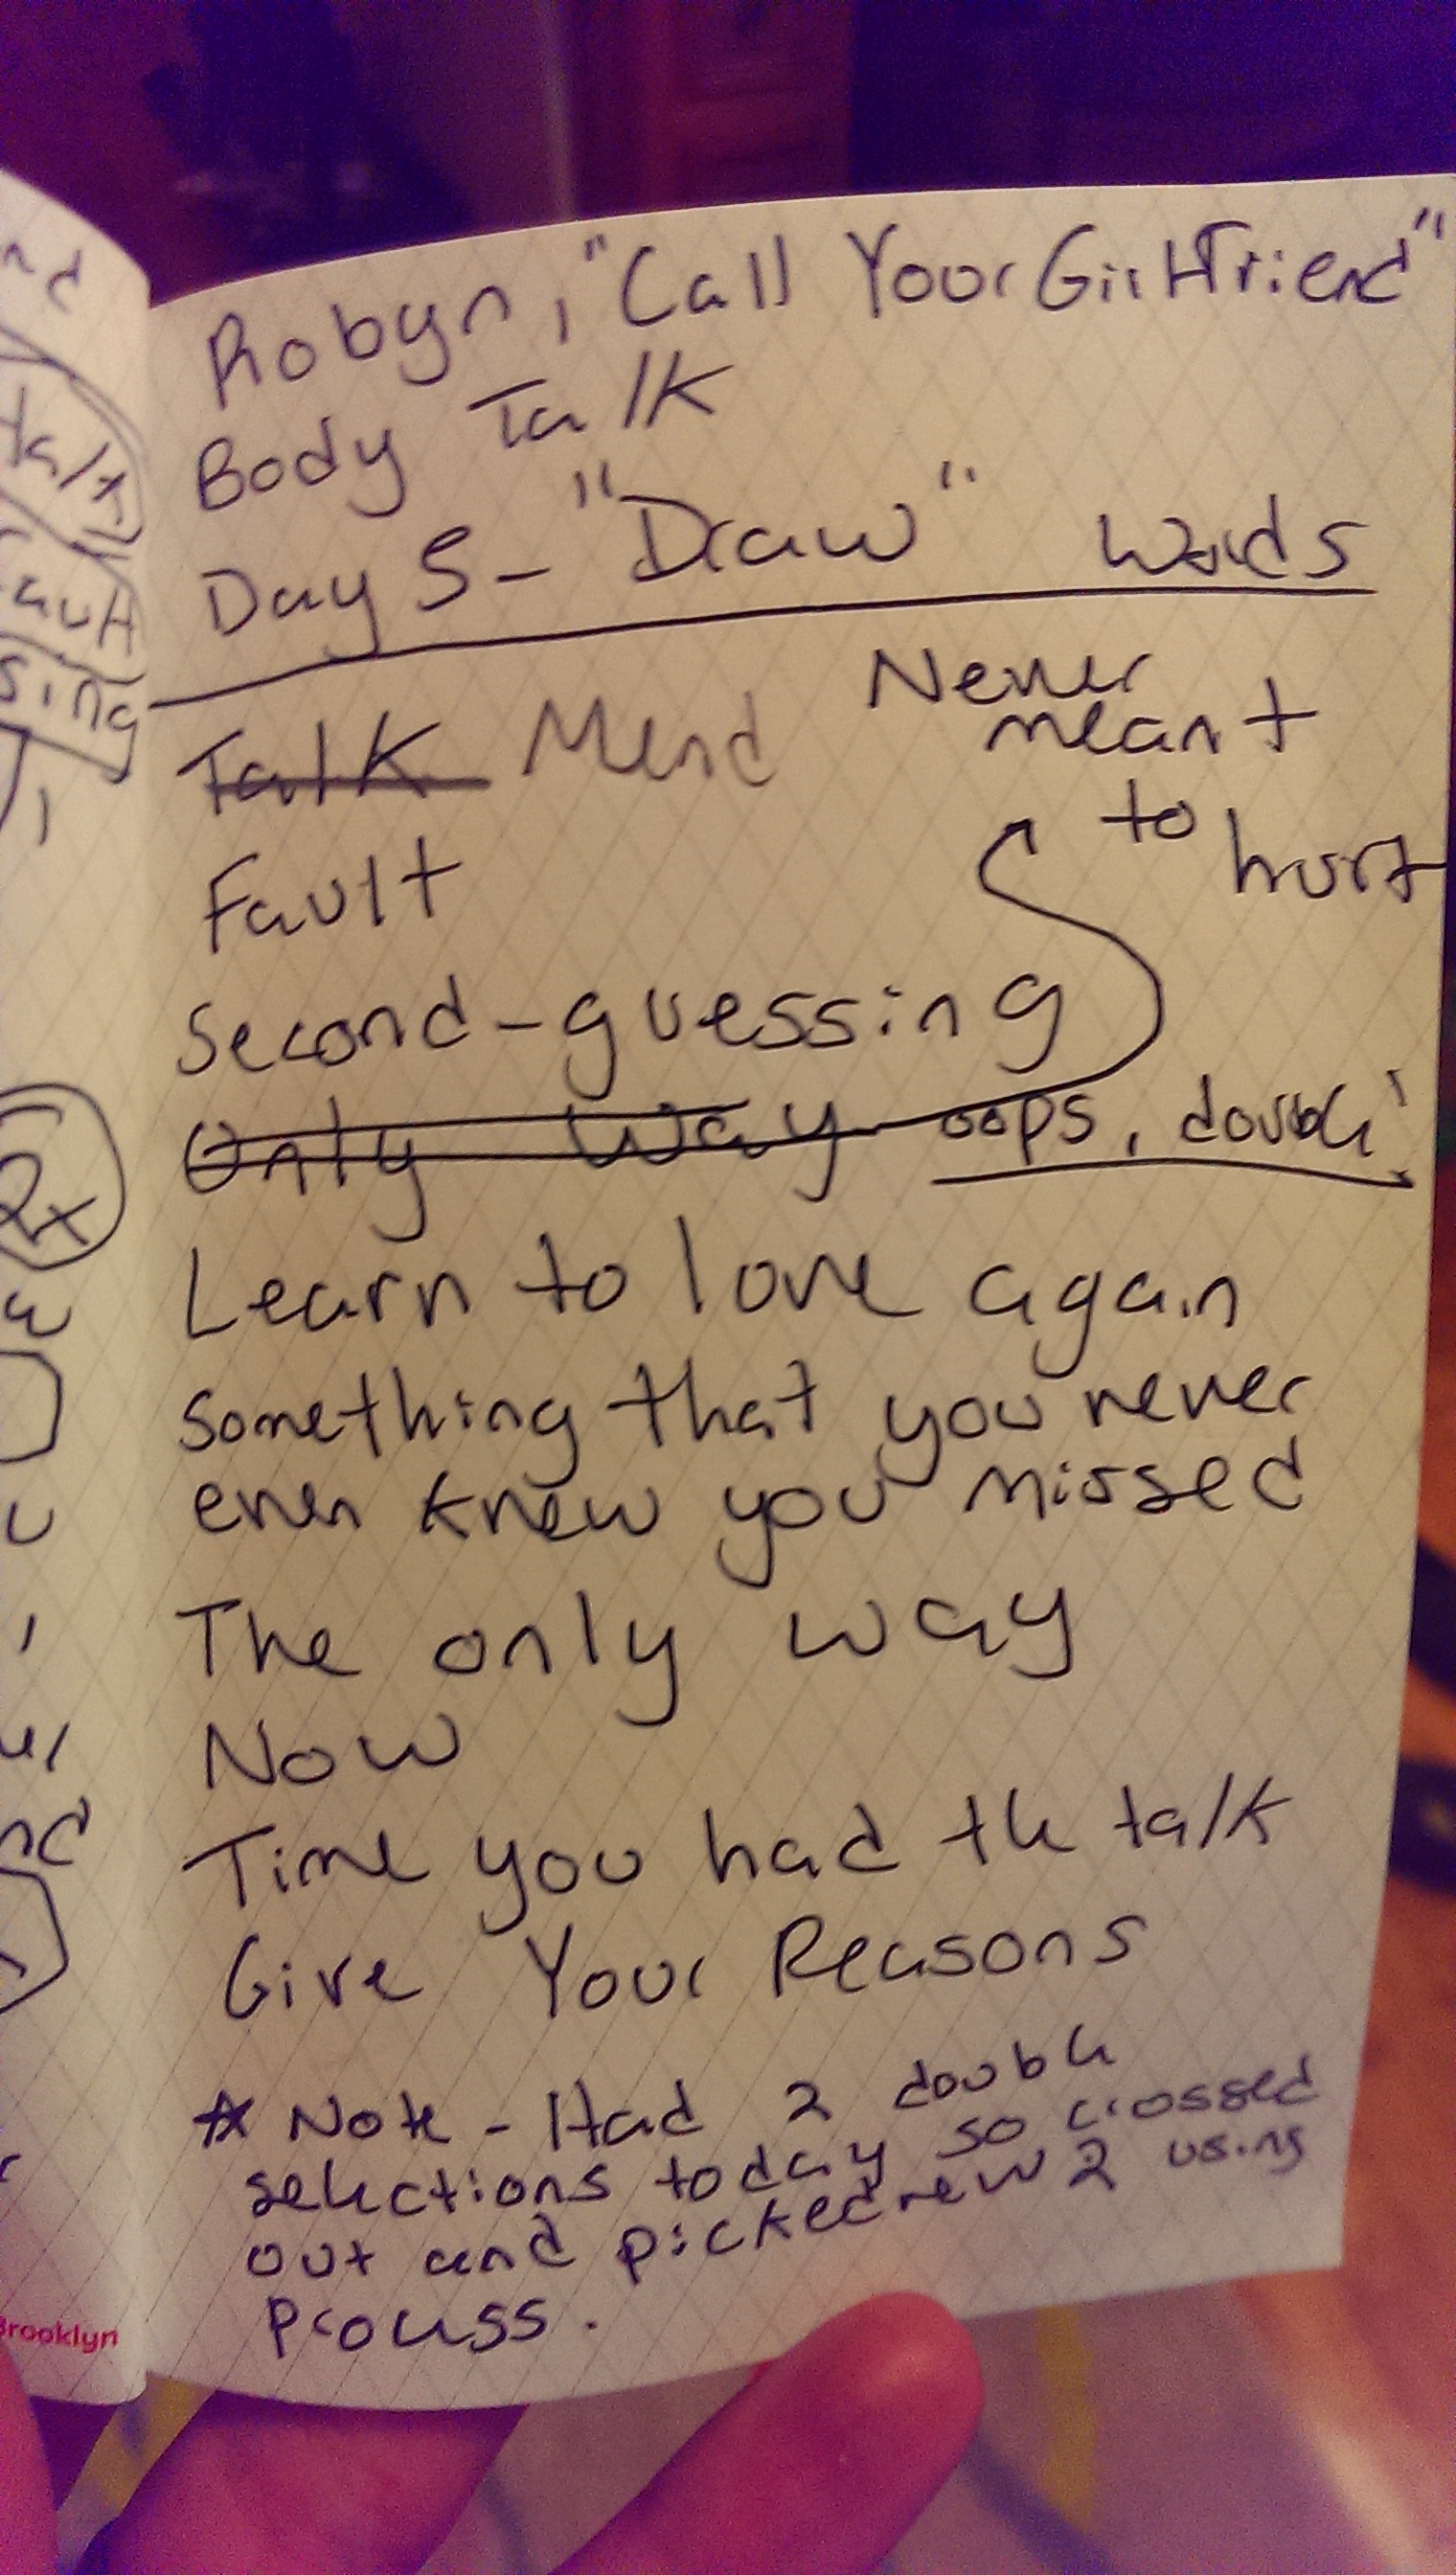 Robyn, "Call Your Girlfriend"
Body Talk
Day 5 - "Draw" Words
Talk Mend
Never
meant
to hurt
Fault
Second-guessing
Only Way oops, double!
Learn to love again
Something that you never
even knew you missed
The only way
Now
Time you had the talk
Give Your Reasons
* Note - Had 2 double
selections today so crossed
out and picked new 2 using
process.
nd
Talk
ault
sing
2x
nd
Brooklyn